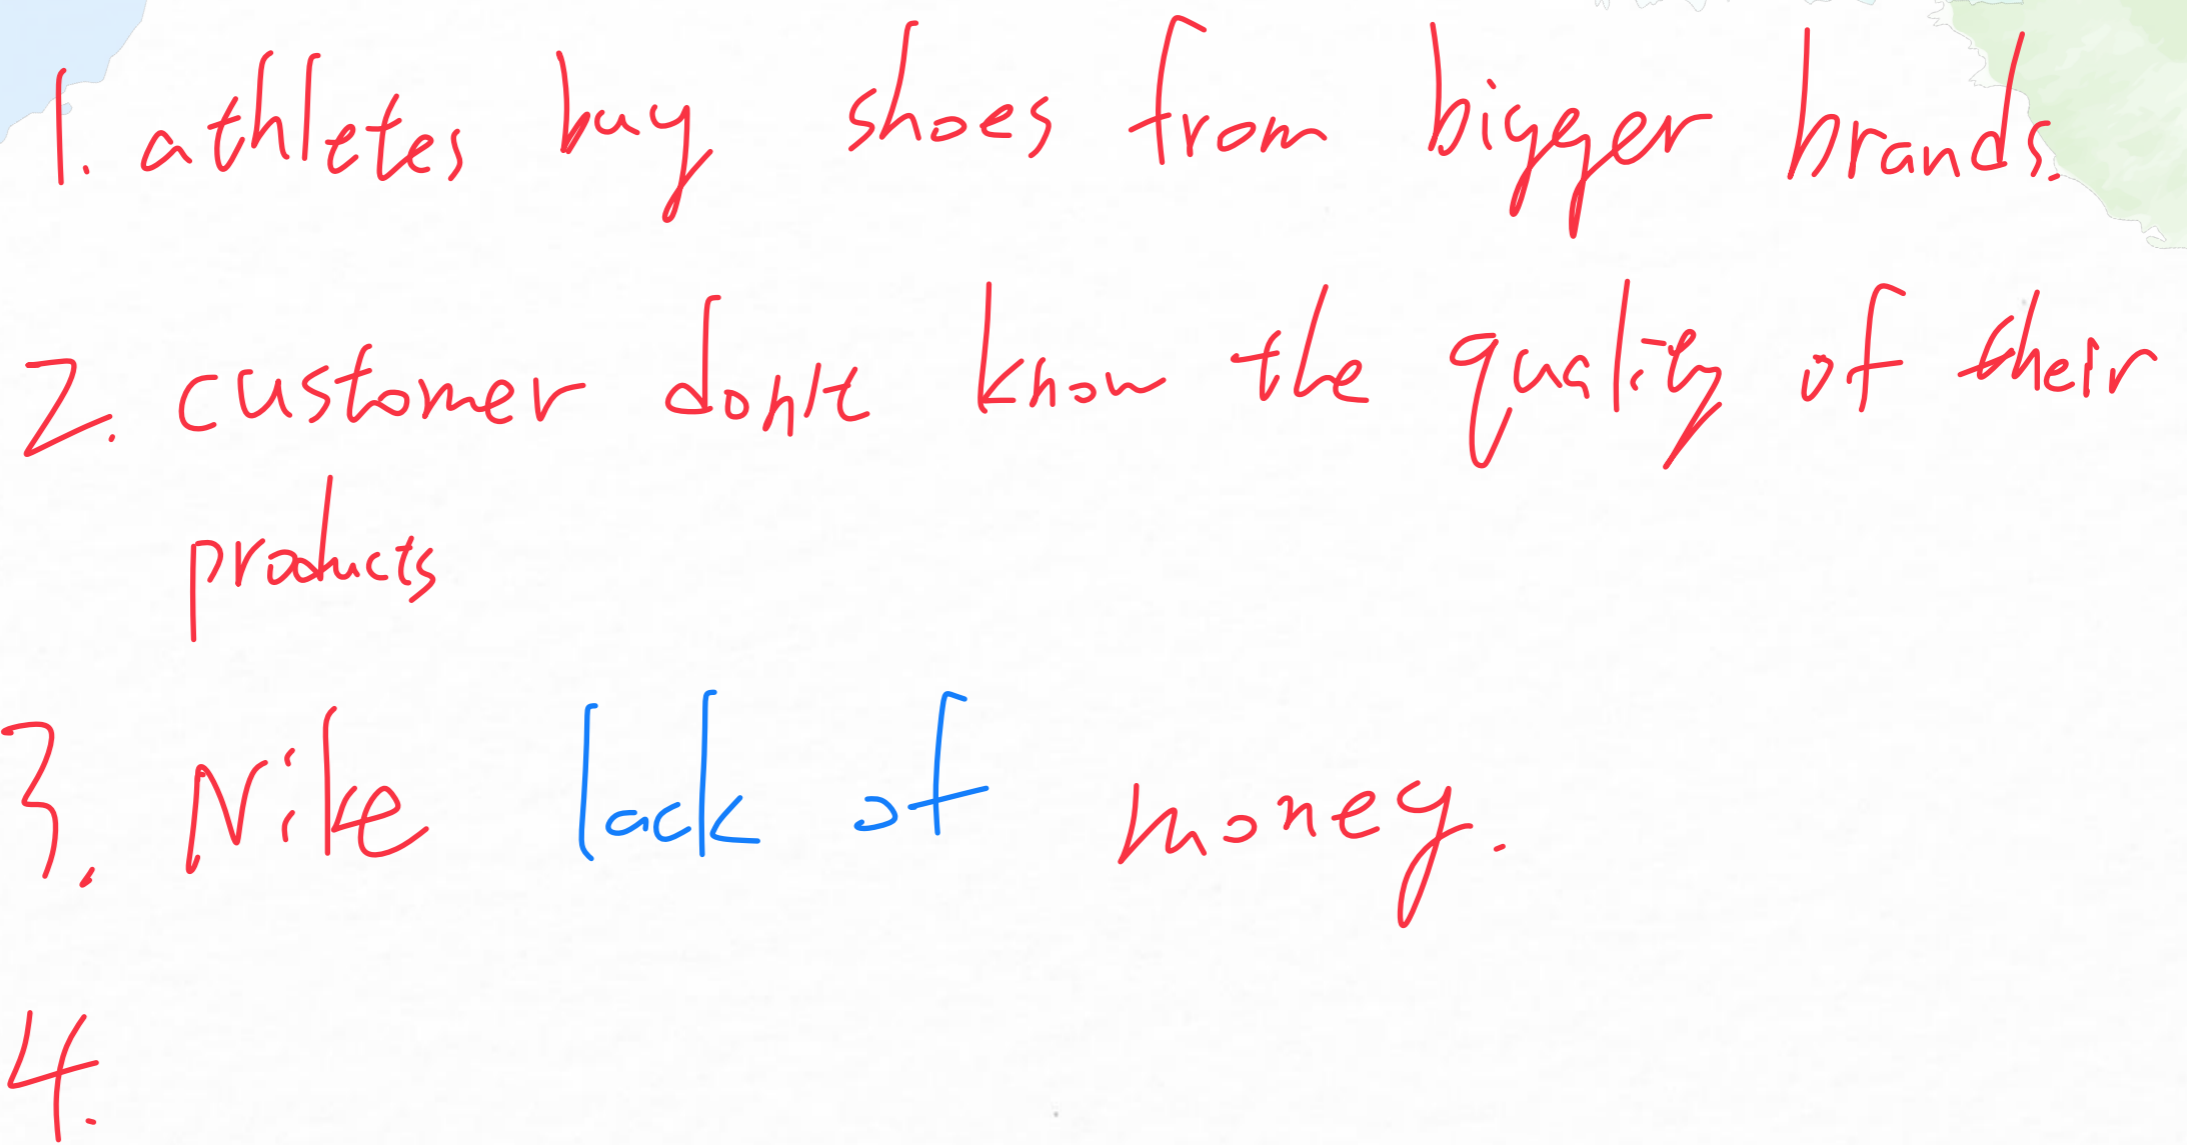 1. athletes buy shoes from bigger brands.
2. customer don't know the quality of their
products
3. Nike lack of money.
4.